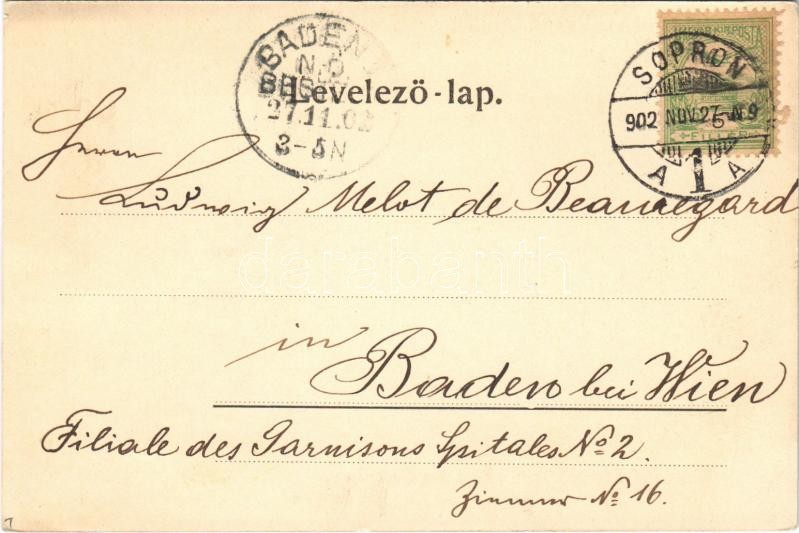 BADEN
N.Ö.
27.11.02
3-5N
Levelező-lap.
MAGYAR KIR. POSTA
SOPRON
902 NOV. 27 N 9
5
FILLÉR
A 1 A
Herrn
Ludwig Melot de Beauregard
darabanth
in
Baden bei Wien
Filiale des Garnisons Spitales No 2.
Zimmer No 16.